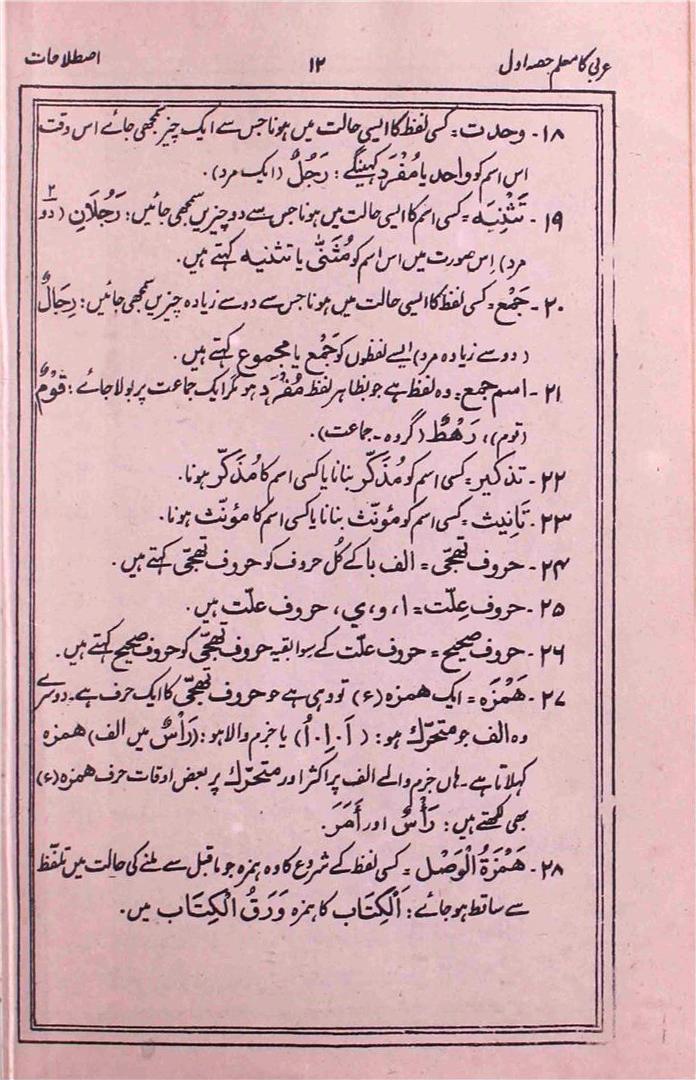 عربی کا معلم حصہ اول
۱۲
اصطلاحات
۱۸- وحدت = کسی لفظ کا ایسی حالت میں ہونا جس سے ایک چیز سمجھی جائے اس وقت
اس اسم کو واحد یا مُفْرَد کہینگے: رَجُلٌ (ایک مرد).
۱۹- تَثْنِیَہ = کسی اسم کا ایسی حالت میں ہونا جس سے دو چیزیں سمجھی جائیں: رَجُلَانِ (دو ۲
مرد) اِس صورت میں اس اسم کو مُثَنّٰی یا تثنیہ کہتے ہیں.
۲۰- جَمْع = کسی لفظ کا ایسی حالت میں ہونا جس سے دو سے زیادہ چیزیں سمجھی جائیں: رِجَالٌ
(دو سے زیادہ مرد) ایسے لفظوں کو جَمْع یا مجموع کہتے ہیں.
۲۱- اسم جمع = وہ لفظ ہے جو بظاہر لفظ مُفْرَد ہو مگر ایک جماعت پر بولا جائے: قَوْمٌ
(قوم)، رَهْطٌ (گروہ-جماعت).
۲۲- تذکیر = کسی اسم کو مُذَکَّر بنانا یا کسی اسم کا مُذَکَّر ہونا.
۲۳- تَانِیث = کسی اسم کو مؤنّث بنانا یا کسی اسم کا مؤنّث ہونا.
۲۴- حروف تَھجّی = الف با کے کُل حروف کو حروف تَھجّی کہتے ہیں.
۲۵- حروف عِلّت = ا، و، ي، حروف علّت ہیں.
۲۶- حروف صحیح = حروف علّت کے سوا بقیہ حروف تَھجّی کو حروف صحیح کہتے ہیں.
۲۷- ھَمْزَہ = ایک ھمزہ (ء) تو وہی ہے جو حروف تَھجّی کا ایک حرف ہے۔ دوسرے
وہ الف جو متحرّك ہو: (اَ.اِ.اُ) یا جزم والا ہو: (رَاْسٌ میں الف) ھمزہ
کہلاتا ہے۔ ہاں جزم والے الف پر اکثر اور متحرّك پر بعض اوقات حرف ھمزہ (ء)
بھی لکھتے ہیں: رَأْسٌ اور أَمَرَ.
۲۸- ھَمْزَةُ الْوَصْل = کسی لفظ کے شروع کا وہ ہمزہ جو ماقبل سے ملنے کی حالت میں تلفّظ
سے ساقط ہو جائے: اَلْكِتَاب کا ہمزہ وَرَقُ الْكِتَاب میں.